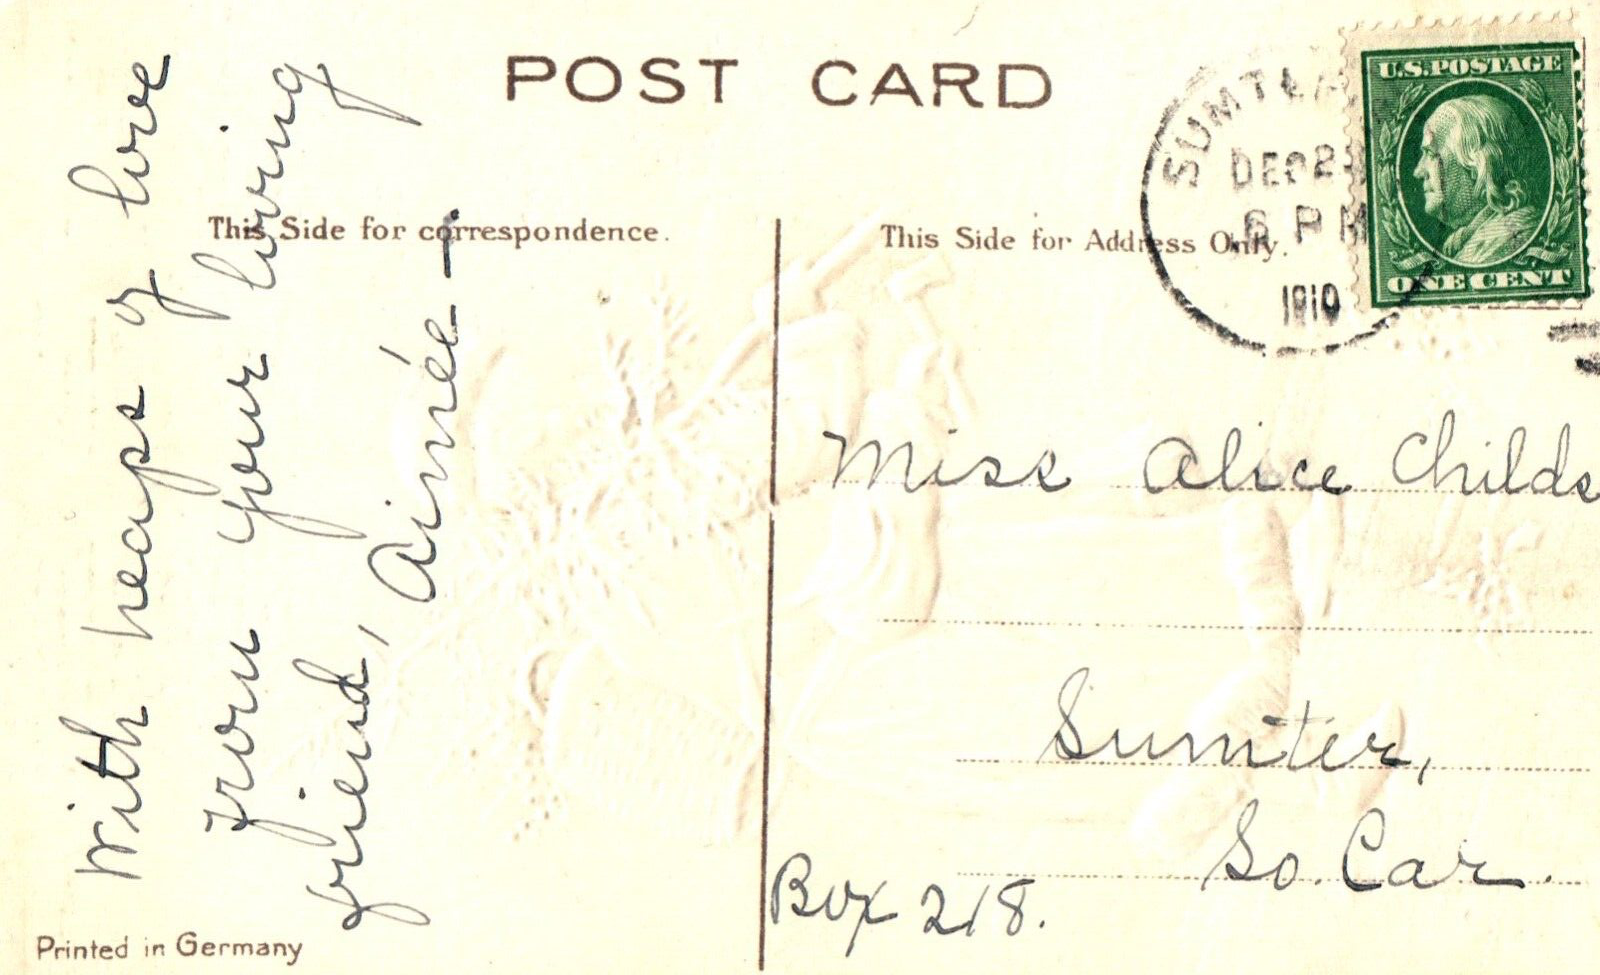 POST CARD
U.S.POSTAGE
ONE CENT
SUMTER
DEC
6 PM
1910
This Side for correspondence.
This Side for Address Only.
With heaps of love
from your loving
friend, Aimée —
Miss Alice Childs
Sumter,
So. Car.
Box 218.
Printed in Germany